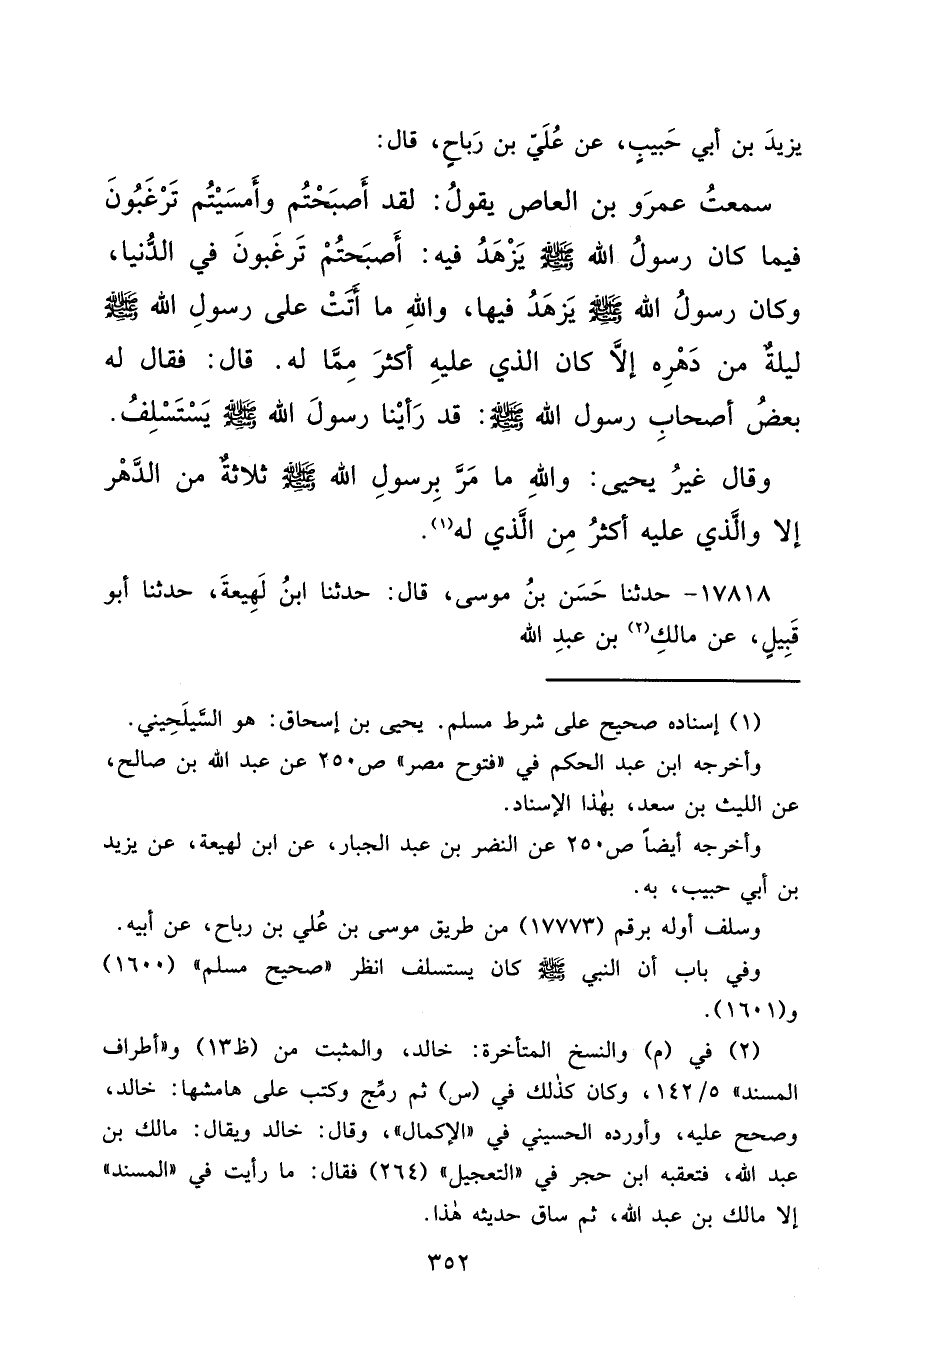 يزيدَ بن أبي حَبيبٍ، عن عُلَيّ بن رَباحٍ، قال:
سمعتُ عمرَو بن العاص يقولُ: لقد أَصبَحْتُم وأَمسَيْتُم تَرْغَبُونَ
فيما كان رسولُ الله ﷺ يَزْهَدُ فيه: أَصبَحتُمْ تَرغَبونَ في الدُّنيا،
وكان رسولُ الله ﷺ يَزهَدُ فيها، واللهِ ما أَتَتْ على رسولِ الله ﷺ
ليلةٌ من دَهْرِه إلَّا كان الذي عليهِ أكثرَ مِمَّا له. قال: فقال له
بعضُ أصحابِ رسول الله ﷺ: قد رَأَيْنا رسولَ الله ﷺ يَسْتَسْلِفُ.
وقال غيرُ يحيى: واللهِ ما مَرَّ بِرسولِ الله ﷺ ثلاثةٌ من الدَّهْر
إلا والَّذي عليه أكثرُ مِن الَّذي له(١).
١٧٨١٨- حدثنا حَسَن بنُ موسى، قال: حدثنا ابنُ لَهِيعةَ، حدثنا أبو
قَبِيلٍ، عن مالكِ(٢) بن عبدِ الله
(١) إسناده صحيح على شرط مسلم. يحيى بن إسحاق: هو السَّيلَحِيني.
وأخرجه ابن عبد الحكم في «فتوح مصر» ص٢٥٠ عن عبد الله بن صالح،
عن الليث بن سعد، بهٰذا الإسناد.
وأخرجه أيضاً ص٢٥٠ عن النضر بن عبد الجبار، عن ابن لهيعة، عن يزيد
بن أبي حبيب، به.
وسلف أوله برقم (١٧٧٧٣) من طريق موسى بن عُلي بن رباح، عن أبيه.
وفي باب أن النبي ﷺ كان يستسلف انظر «صحيح مسلم» (١٦٠٠)
و(١٦٠١).
(٢) في (م) والنسخ المتأخرة: خالد، والمثبت من (ظ١٣) و«أطراف
المسند» ١٤٢/٥، وكان كذٰلك في (س) ثم رمِّج وكتب على هامشها: خالد،
وصحح عليه، وأورده الحسيني في «الإكمال»، وقال: خالد ويقال: مالك بن
عبد الله، فتعقبه ابن حجر في «التعجيل» (٢٦٤) فقال: ما رأيت في «المسند»
إلا مالك بن عبد الله، ثم ساق حديثه هٰذا.
٣٥٢